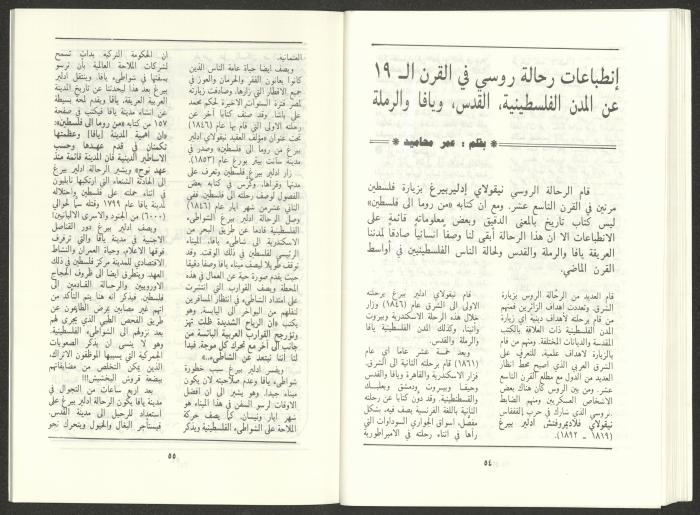 إنطباعات رحالة روسي في القرن الـ ١٩
عن المدن الفلسطينية، القدس، ويافا والرملة
بقلم : عمر محاميد
قام الرحالة الروسي نيقولاي إدليربيرغ بزيارة فلسطين
مرتين في القرن التاسع عشر. ومع ان كتابه «من روما الى فلسطين»
ليس كتاب تاريخ بالمعنى الدقيق وبعض معلوماته قائمة على
الانطباعات الا ان هذا الرحالة أبقى لنا وصفاً انسانياً صادقاً لمدننا
العريقة يافا والرملة والقدس ولحالة الناس الفلسطينيين في أواسط
القرن الماضي.
قام العديد من الرحّالة الروس بزيارة
القدس. وتعددت أهداف الزائرين فمنهم
من قام برحلته لأهداف دينية اي زيارة
المدن الفلسطينية ذات العلاقة بالكتب
المقدسة والديانات المختلفة. ومنهم من قام
بالزيارة لاهداف علمية، للتعرف على
الشرق العربي الذي اصبح محط انظار
العديد من الدول مع مطلع القرن التاسع
عشر. ومن بين الروس كان هناك بعض
الاشخاص العسكريين ومنهم الضابط
الروسي الذي شارك في حرب القفقاس
نيقولاي فلاديمروفتش ادلير بيرغ
(١٨١٩ - ١٨٩٢).
قام نيقولاي ادلير بيرغ برحلته
الاولى الى الشرق عام (١٨٤٦) وزار
خلال هذه الرحلة الاسكندرية وبيروت
وأثينا، وكذلك المدن الفلسطينية يافا
والرملة والقدس.
وبعد خمسة عشر عاما اي عام
(١٨٦١) قام برحلته الثانية الى الشرق.
فزار الاسكندرية والقاهرة ويافا والقدس
وحيفا وبيروت ودمشق وبعلبك
والقسطنطينية. وقد دون كتابا عن رحلته
الثانية باللغة الفرنسية يصف فيه، بشكل
مفصل، اسواق الجواري السوداوات التي
رآها في اثناء رحلته في الامبراطورية
٥٤
العثمانية.
ويصف ايضا حياة عامة الناس الذين
كانوا يعانون الفقر والحرمان والعوز في
جميع الاقطار التي زارها. وصادفت زيارته
لمصر فترة السنوات الاخيرة لحكم محمد
علي باشا. وقد صنف كتابا آخر عن
رحلته الاولى التي قام بها عام (١٨٤٦)
تحت عنوان «مؤلف العقيد نيقولاي ادلير
بيرغ من روما الى فلسطين» وصدر في
مدينة سانت بيتر بورغ عام (١٨٥٣).
زار ادلير بيرغ فلسطين وتعرف على
مدنها وقراها. وكرّس في كتابه بعض
الفصول لوصف رحلته الى فلسطين. ففي
الثاني عشر من شهر ايار عام (١٨٤٦)
وصل الرحالة ادلير بيرغ الشواطىء
الفلسطينية قادما عن طريق البحر من
الاسكندرية الى شاطىء يافا. الميناء
الرئيسي لفلسطين في ذلك الوقت. وقد
توقف طويلا ليصف ميناء يافا وصفا دقيقا
حيث يقدم صورة حية عن العمال في هذه
المحطة ويصف القوارب التي انتشرت
على امتداد الشاطىء في انتظار المسافرين
لنقلهم من البواخر الى اليابسة. وهو
يكتب «ان الرياح الشديدة ظلت تهز
وتؤرجح القوارب العربية البائسة من
جانب الى آخر مع تحرك كل موجة، فيبدأ
لنا اننا نبتعد عن الشاطىء.»
ويفسر ادلير بيرغ سبب خطورة
شواطىء يافا وعدم صلاحيته لان يكون
ميناء جيدا. وهو يشير الى ان افضل
الاوقات لرسو السفن في هذا الميناء هو
شهر ايار ونيسان. كما يصف حركة
الملاحة على الشواطىء الفلسطينية ويذكر
ان الحكومة التركية بدأت تسمح
لشركات الملاحة العالمية بأن ترسو
بسفنها في شواطىء يافا. وينتقل ادلير
بيرغ بعد هذا ليحدثنا عن تاريخ المدينة
العربية العريقة، يافا ويقدم لمحة بسيطة
عن انشاء مدينة يافا فيكتب في صفحة
١٥٧ من كتابه «من روما الى فلسطين»:
«ان اهمية المدينة [يافا] وعظمتها
تكمنان في قدم عهدها وحسب
الاساطير الدينية فأن المدينة قائمة منذ
عهد نوح» ويشير الرحالة ادلير بيرغ
الى الحادثة الشنعاء التي ارتكبها نابليون
في اثناء حملته على فلسطين واحتلاله
لمدينة يافا عام ١٧٩٩ وقتله سما لحوالي
(٦٠٠٠) من الجنود والاسرى الالبانيين!
ويصف ادلير بيرغ دور القناصل
الاجنبية في مدينة يافا والتي ترفرف
فوقها الاعلام، وحياة العمران والنشاط
الاقتصادي للمدينة مركز فلسطين في ذلك
العهد. ويتطرق ايضا الى ظروف الحجاج
الاوروبيين والرحالة القادمين الى
فلسطين. فيذكر أنه هنا يتم التأكد من
انهم غير مصابين بمرض الطاعون عن
طريق الفحص الطبي الذي يجرى لهم
بعد نزولهم الى الشواطىء الفلسطينية.
وهو لا ينسى ان يذكر الصعوبات
الجمركية التي يسببها الموظفون الاتراك،
الذين يمكن التخلص من مضايقاتهم
ببضعة قروش البخشيش!!!
بعد اربع ساعات من التجوال في
مدينة يافا يكون الرحالة ادلير بيرغ على
استعداد للرحيل الى مدينة القدس.
فيستأجر البغال والخيول ويتحرك نحو
٥٥